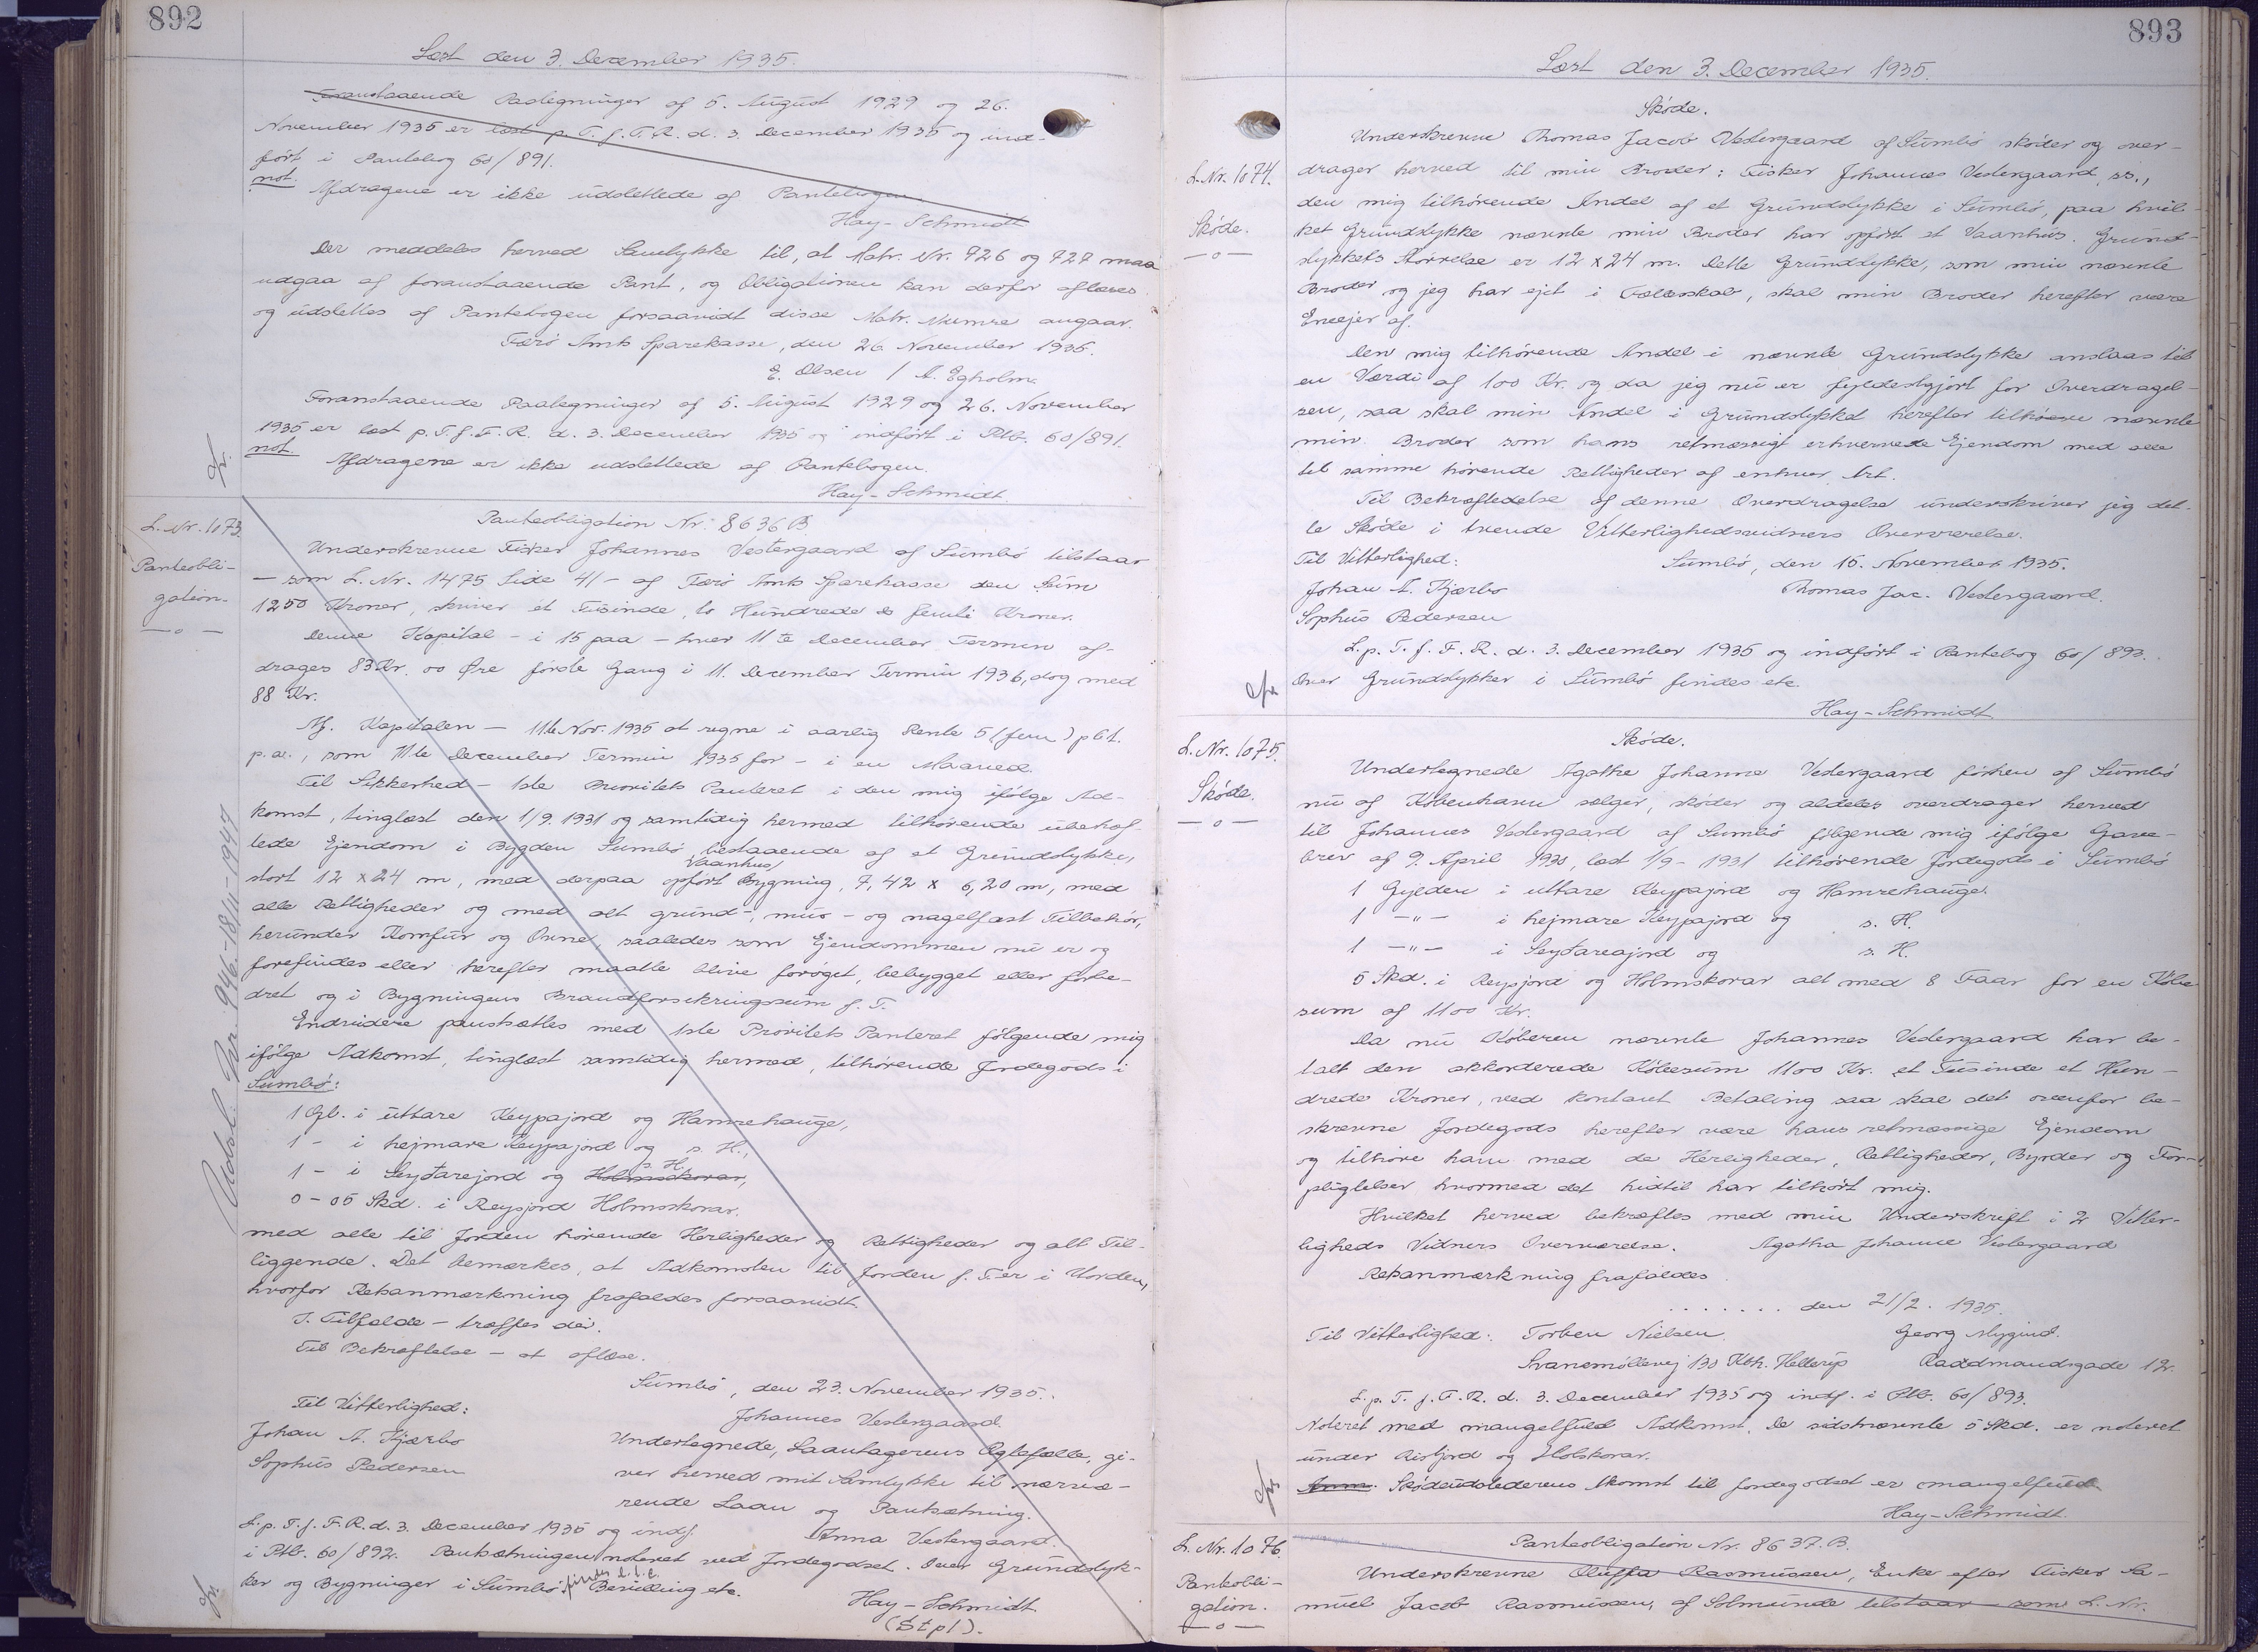 892
Læst den 3. December 1935.
Foranstaaende Paategninger af 5. August 1929 og 26.
November 1935 er læst p. T. f. F. R. d. 3. December 1935 og ind-
ført i Pantebog 60/891.
not. Afdragene er ikke udslettede af Pantebogen
Hay-Schmidt
Der meddeles herved Samtykke til, at Matr. Nr. 726 og 727 maa
udgaa af foranstaaende Pant, og Obligationen kan derfor aflæses
og udslettes af Pantebogen forsaavidt disse Matr. Numre angaar.
Færø Amts Sparekasse, den 26. November 1935.
E. Olsen / A. Egholm.
Foranstaaende Paategninger af 5. August 1929 og 26. November
1935 er læst p. T. f. F. R. d. 3. December 1935 og indført i Ptb. 60/891.
not. Afdragene er ikke udslettede af Pantebogen.
Hay-Schmidt.
L. Nr. 1073.
Panteobli-
gation.
— o —
Udsl. Nr. 946-18/11-1947
Panteobligation Nr: 8636 B
Underskrevne Fisker Johannes Vestergaard af Sumbø tilstaar
— som L. Nr. 1475 Side 41 — af Færø Amts Sparekasse den Sum
1250 Kroner, skriver et Tusinde, to Hundrede & femti Kroner.
Denne Kapital - i 15 paa - hver 11te December Termin af-
drages 83 Kr. 00 Øre første Gang i 11. December Termin 1936, dog med
88 Kr.
Af Kapitalen — 11te Nov. 1935 at regne i aarlig Rente 5 (fem) pCt.
p.a., som 11te December Termin 1935 for - i en Maaned.
Til Sikkerhed - 1ste Prioritets Panteret i den mig ifølge Ad-
komst, tinglæst den 1/9. 1931 og samtidig hermed tilhørende ubehæf-
tede Ejendom i Bygden Sumbø bestaaende af et Grundstykke,
stort 12 x 24 m, med derpaa opført Vaanhus Bygning, 7,42 x 6,20 m, med
alle Rettigheder og med alt grund-, mur- og nagelfast Tilbehør,
herunder Komfur og Ovne, saaledes som Ejendommen nu er og
forefindes eller herefter maatte blive forøget, bebygget eller forbe-
dret og i Bygningens Brandforsikringssum f. T.
Endvidere pantsættes med 1ste Prioritets Panteret følgende mig
ifølge Adkomst, tinglæst samtidig hermed, tilhørende Jordegods i
Sumbø:
1 Gl. i uttare Keypajord og Hamrehauge,
1 - i hejmare Keypajord og s. H.,
1 - i Seydarejord og s. H. Holmskorar,
0 - 05 Skd. i Reysjord Holmsskorar.
med alle til Jorden hørende Herligheder og Rettigheder og alt Til-
liggende. Det bemærkes, at Adkomsten til Jorden f. T. er i Uorden,
hvorfor Retsanmærkning frafaldes forsaavidt
I Tilfælde - træffes dei.
Til Bekræftelse - at aflæse.
Sumbø, den 23. November 1935.
Til Vitterlighed:
Johannes Vestergaard
Johan A. Kjærbo
Undertegnede, Laantagerens Ægtefælle, gi-
Sophus Pedersen
ver herved mit Samtykke til nærvæ-
rende Laan og Pantsætning.
L. p. T. f. F. R. d. 3. December 1935 og indf.
Anna Vestergaard.
i Ptb. 60/892. Pantsætningen noteret ved Jordegodset. Over Grundstyk-
ker og Bygninger i Sumbø findes Bevilling etc.
Hay-Schmidt
(Stpl).
893
Læst den 3. December 1935.
L. Nr. 1074.
Skøde.
— o —
Skøde.
Underskrevne Thomas Jacob Vestergaard af Sumbø skøder og over-
drager herved til min Broder: Fisker Johannes Vestergaard, ss.,
den mig tilhørende Andel af et Grundstykke i Sumbø, paa hvil-
ket Grundstykke nævnte min Broder har opført et Vaanhus. Grund-
stykkets Størrelse er 12 x 24 m. Dette Grundstykke, som min nævnte
Broder og jeg har ejet i Fælesskab, skal min Broder herefter være
Eneejer af.
Den mig tilhørende Andel i nævnte Grundstykke anslaas til
en Værdi af 100 Kr. og da jeg nu er fyldestgjort for Overdragel-
sen, saa skal min Andel i Grundstykket herefter tilhøre nævnte
min Broder som hans retmæssigt erhvervede Ejendom med alle
til samme hørende Rettigheder af enhver Art.
Til Bekræftedelse af denne Overdragelse underskriver jeg det-
te Skøde i tvende Vitterlighedsvidners Overværelse.
Til Vitterlighed:
Sumbø, den 15. November 1935.
Johan A. Kjærbo
Thomas Jac. Vestergaard.
Sophus Pedersen
L. p. T. f. F. R. d. 3. December 1935 og indført i Pantebog 60/893.
Over Grundstykker i Sumbø findes etc.
Hay-Schmidt
L. Nr. 1075.
Skøde.
— o —
Skøde.
Undertegnede Agathe Johanne Vestergaard förhen af Sumbø
nu af København sælger, skøder og aldeles overdrager herved
til Johannes Vestergaard af Sumbø følgende mig ifølge Gave-
brev af 9. April 1930, læst 1/9 - 1931 tilhørende Jordegods i Sumbø
1 Gylden i uttare Keypajord og Hamrehauge.
1 -"- i hejmare Keypajord og s. H.
1 -"- i Seydareajord og s. H.
5 Skd. i Reysjord og Holmskorar alt med 8 Faar for en Købe
sum af 1100 Kr.
Da nu Køberen nævnte Johannes Vestergaard har be-
talt den akkorderede Købesum 1100 Kr. et Tusinde et Hun-
drede Kroner, ved kontant Betaling saa skal det ovenfor be-
skrevne Jordegods herefter være hans retmæssige Ejendom
og tilhøre ham med de Herligheder, Rettigheder, Byrder og For-
pligtelser hvormed det hidtil har tilhørt mig.
Hvilket herved bekræftes med min Underskrift i 2 Vitter-
ligheds Vidners Overværelse. Agatha Johanne Vestergaard
Retsanmærkning frafaldes
. . . . . . . den 21/2. 1935.
Til Vitterlighed: Torben Nielsen. Georg Mygind.
Svanemøllevej 130 Kbh. Hellerup Raadmandsgade 12.
L. p. T. f. F. R. d. 3. December 1935 og indf. i Ptb. 60/893.
Noteret med mangelfuld Adkomst. De sidstnævnte 5 Skd. er noteret
under Risfjord og Holskorar.
Anm. Skødeudstederens Akomst til Jordegodset er mangelfuld
Hay-Schmidt.
L. Nr. 1076.
Panteobli-
gation.
— o —
Panteobligation Nr. 8637. B.
Underskrevne Oluffa Rasmussen, Enke efter Fisker Sa-
muel Jacob Rasmussen, af Solmunde tilstaar - som L. Nr.